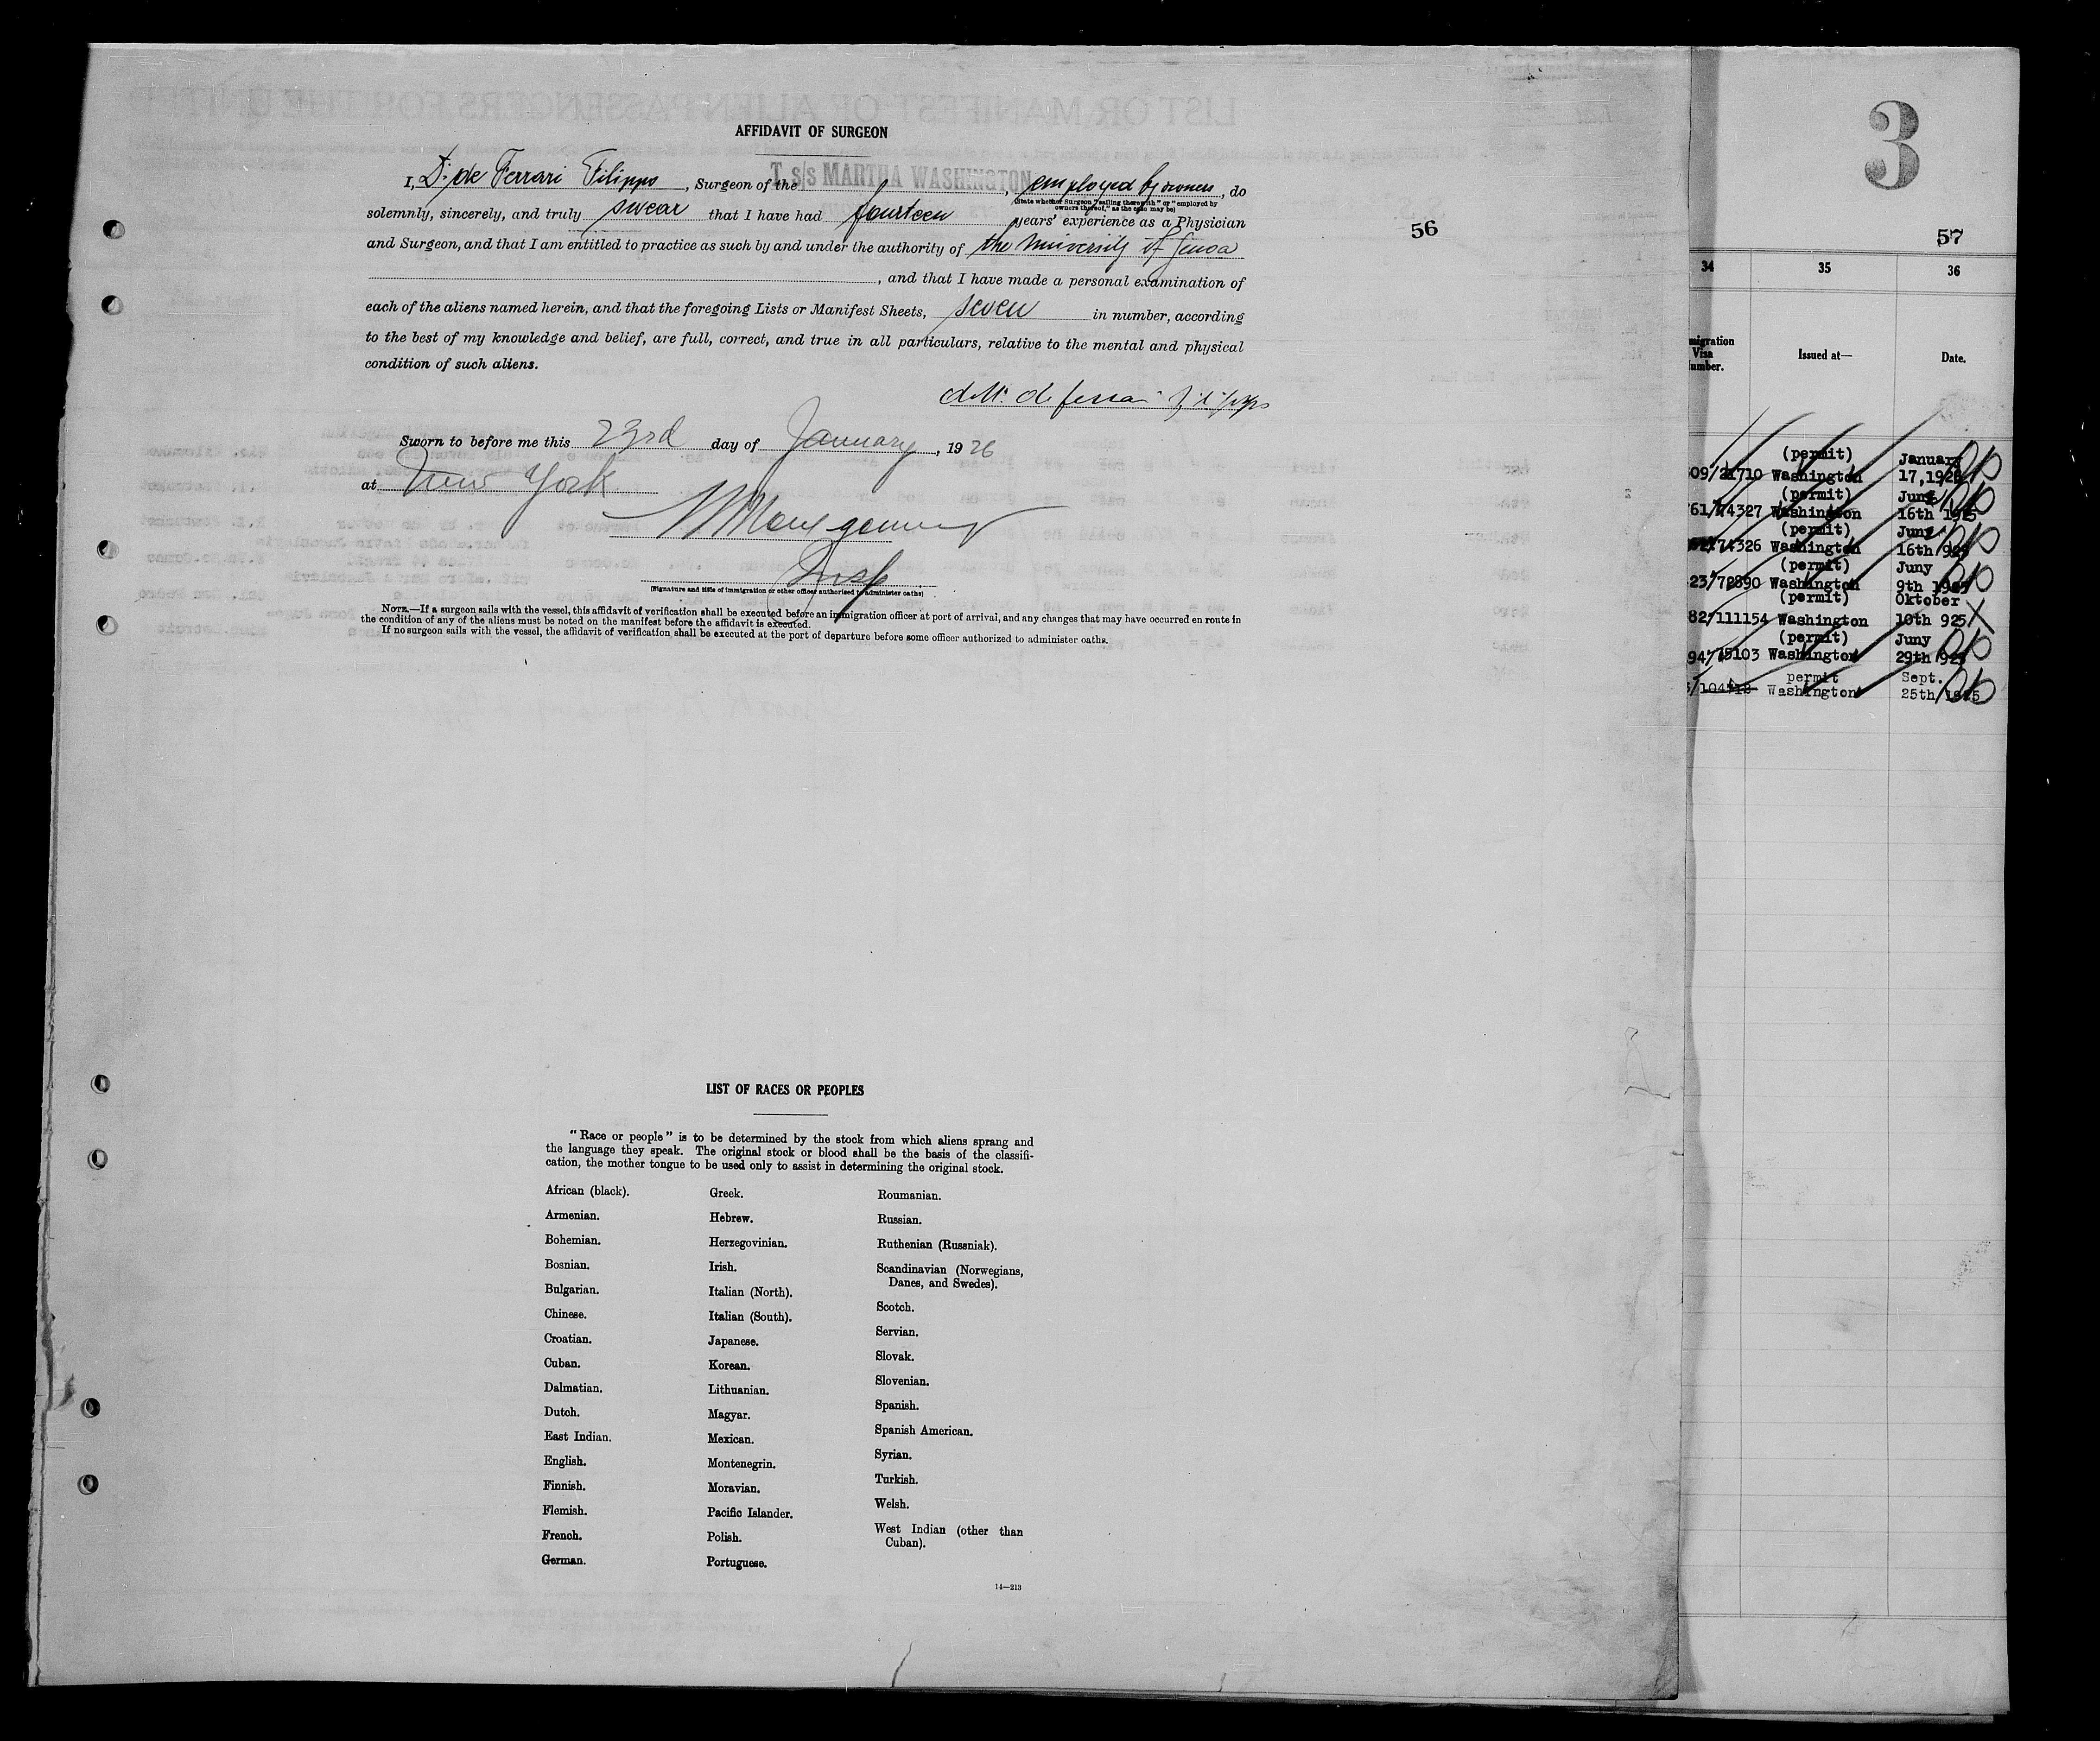 AFFIDAVIT OF SURGEON
I, Dr de Ferrari Filippo, Surgeon of the T. s/s MARTHA WASHINGTON, employed by owners, do
(State whether Surgeon "sailing therewith" or "employed by
owners thereof," as the case may be)
solemnly, sincerely, and truly swear that I have had fourteen years' experience as a Physician
and Surgeon, and that I am entitled to practice as such by and under the authority of the University of Genoa
, and that I have made a personal examination of
each of the aliens named herein, and that the foregoing Lists or Manifest Sheets, seven in number, according
to the best of my knowledge and belief, are full, correct, and true in all particulars, relative to the mental and physical
condition of such aliens.
de Ferrari Filippo
Sworn to before me this 23rd day of January, 1926
at New York
Montgomery
Insp
(Signature and title of immigration or other officer authorized to administer oaths)
NOTE.—If a surgeon sails with the vessel, this affidavit of verification shall be executed before an immigration officer at port of arrival, and any changes that may have occurred en route in
the condition of any of the aliens must be noted on the manifest before the affidavit is executed.
If no surgeon sails with the vessel, the affidavit of verification shall be executed at the port of departure before some officer authorized to administer oaths.
56
LIST OF RACES OR PEOPLES
"Race or people" is to be determined by the stock from which aliens sprang and
the language they speak. The original stock or blood shall be the basis of the classifi-
cation, the mother tongue to be used only to assist in determining the original stock.
African (black).
Armenian.
Bohemian.
Bosnian.
Bulgarian.
Chinese.
Croatian.
Cuban.
Dalmatian.
Dutch.
East Indian.
English.
Finnish.
Flemish.
French.
German.
Greek.
Hebrew.
Herzegovinian.
Irish.
Italian (North).
Italian (South).
Japanese.
Korean.
Lithuanian.
Magyar.
Mexican.
Montenegrin.
Moravian.
Pacific Islander.
Polish.
Portuguese.
Roumanian.
Russian.
Ruthenian (Russniak).
Scandinavian (Norwegians,
Danes, and Swedes).
Scotch.
Servian.
Slovak.
Slovenian.
Spanish.
Spanish American.
Syrian.
Turkish.
Welsh.
West Indian (other than
Cuban).
14—213
3
57
34 35 36
migration
Visa
umber.
Issued at—
Date.
(permit) January
09/21710 Washington 17,1925
(permit) Juny
61/74327 Washington 16th 1925
(permit) Juny
74326 Washington 16th 925
(permit) Juny
23/72890 Washington 9th 1925
(permit) Oktober
82/111154 Washington 10th 925
(permit) Juny
94/75103 Washington 29th 925
permit Sept.
Washington 25th/1925